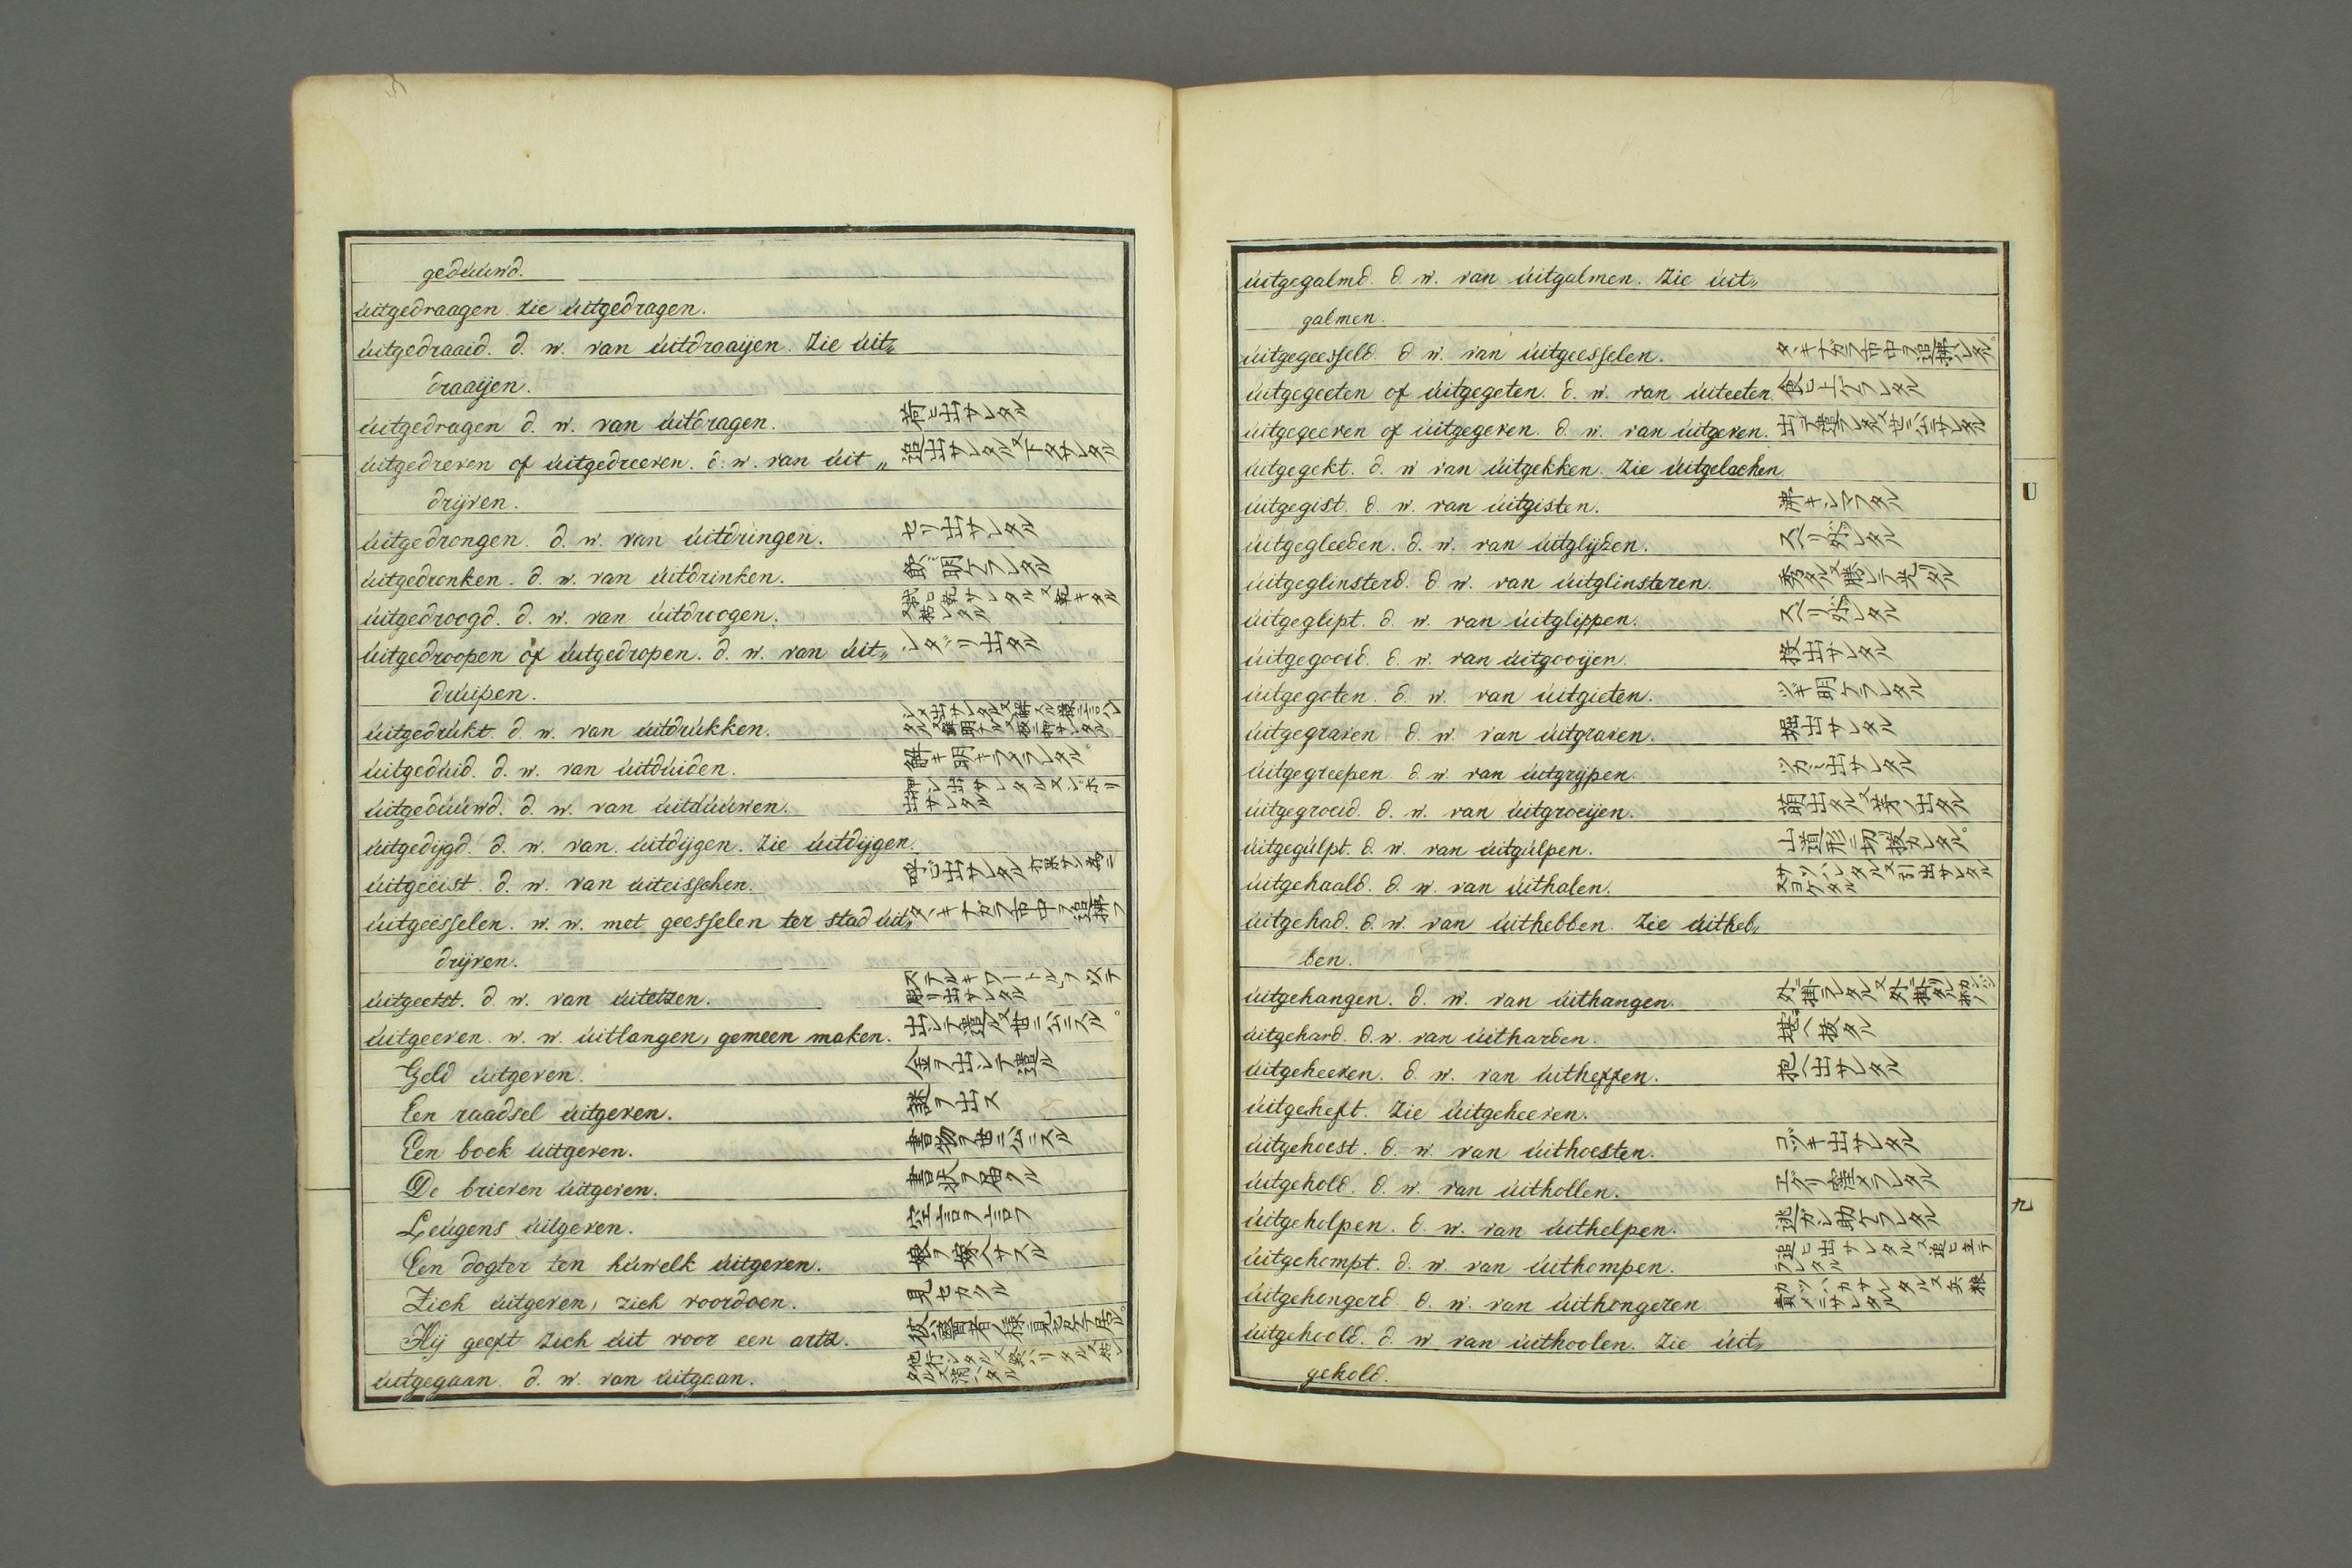 gedúúwd.
úitgedraagen. zie úitgedragen.
úitgedraaid. d. w. van úitdraaijen. Zie úit„
draaijen.
úitgedragen d. w. van úitdragen. 荷ヒ出サレタル
úitgedreven of úitgedreeven. d. w. van úit„ 追出サレタル
drijven.
úitgedrongen. d. w. van úitdringen. セリ出サレタル
úitgedronken. d. w. van úitdrinken. 飲ミ明ケラレタル
úitgedroogd. d. w. van úitdroogen.
úitgedroopen of úitgedropen. d. w. van úit„ シタゞリ出タル
drúipen.
úitgedrúkt. d. w. van úitdrúkken.
úitgedúid. d. w. van úitdúiden. 解キ明キラメラレタル。
úitgedúúwd. d. w. van úitdúúwen.
úitgedijgd. d. w. van úitdijgen. zie úitdijgen.
úitgeëist. d. w. van úiteisschen. 呼ビ出サレタル
úitgeesselen. w. w. met geesselen ter stad úit„ タヽキナガラ市中ヲ追拂フ
drijven.
úitgeetst. d. w. van úitetzen. 彫リ出サレタル
úitgeeven. w. w. úitlangen, gemeen maken. 出シテ遣ル又世ニ公ニスル。
Geld úitgeven. 金ヲ出シテ遣ル
Een raadsel úitgeven. 謎ヲ出ス
Een boek úitgeven. 書物ヲ世ニ公ニスル
De brieven úitgeven. 書状ヲ届クル
Leúgens úitgeven. 空言ヲ言フ
Een dogter ten húwelk úitgeven. 娘ヲ嫁入サスル
Zich úitgeven, zich voordoen. 見セカクル
Hij geeft zich úit voor een artz.
úitgegaan. d. w. van úitgaan.
úitgegalmd. d. w. van úitgalmen. zie úit„
galmen.
úitgegeesseld. d w. van úitgeesselen. タヽキナガラ市中ヲ追拂ハレタル。
úitgegeeten of úitgegeten. d. w. van úiteeten. 食ヒ上ケラレタル
úitgegeeven of úitgegeven. d. w. van úitgeven. 出シテ遣ラレタル又世ニ公ニサレタル
úitgegekt. d. w van úitgekken. zie úitgelachen.
úitgegist. d. w. van úitgisten. 沸キシマフタル
úitgegleeden. d. w. van úitglijden. スベリ外レタル
úitgeglinsterd. d w. van úitglinsteren. 秀タル又勝レテ光リタル
úitgeglipt. d. w. van úitglippen. スベリ外レタル
úitgegooid. d. w. van úitgooijen. 投出サレタル
úitgegoten. d. w. van úitgieten. ツギ明ケラレタル
úitgegraven. d. w. van úitgraven. 掘出サレタル
úitgegreepen d. w. van úitgrijpen. ツカミ出サレタル
úitgegroeid. d. w. van úitgroeijen. 萌出タル又芽ノ出タル
úitgegúlpt. d. w. van úitgúlpen. 山道形ニ切拔カレタル。
úitgehaald. d. w. van úithalen.
úitgehad. d. w. van úithebben. zie úitheb„
ben.
úitgehangen. d. w. van úithangen.
úitgehard. d. w. van úitharden. 堪ヘ拔タル
úitgeheeven. d. w. van úitheffen. 抱ヘ出サレタル
úitgeheft. Zie úitgeheeven.
úitgehoest. d. w. van úithoesten. コツキ出サレタル
úitgehold. d. w. van úithollen. エグリ窪メラレタル
úitgeholpen. d. w. van úithelpen. 逃ガシ助ケラレタル
úitgehompt. d. w. van úithompen. 追ヒ出サレタル又追ヒ立テラレタル
úitgehongerd. d. w. van úithongeren
úitgehoold. d. w van úithoolen. zie úit„
gehold.
U
九